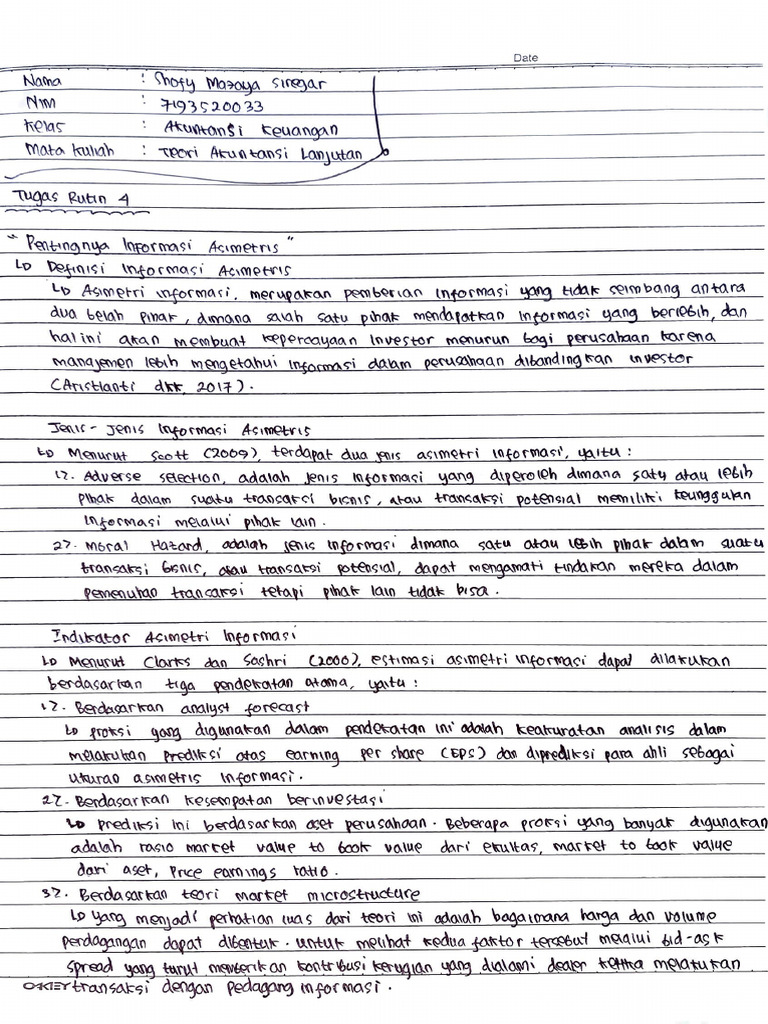 Date
Nama : Shofy Mazaya Siregar
Nim : 7193520033
Kelas : Akuntansi Keuangan
Mata Kuliah : Teori Akuntansi Lanjutan
Tugas Rutin 4
"Pentingnya Informasi Asimetris"
↳ Definisi Informasi Asimetris
↳ Asimetri informasi, merupakan pemberian informasi yang tidak seimbang antara
dua belah pihak, dimana salah satu pihak mendapatkan informasi yang berlebih, dan
hal ini akan membuat kepercayaan investor menurun bagi perusahaan karena
manajemen lebih mengetahui informasi dalam perusahaan dibandingkan investor
(Aristianti dkk, 2017).
Jenis-jenis Informasi Asimetris
↳ Menurut Scott (2009), terdapat dua jenis asimetri informasi, yaitu :
1). Adverse selection, adalah jenis informasi yang diperoleh dimana satu atau lebih
pihak dalam suatu transaksi bisnis, atau transaksi potensial memiliki keunggulan
informasi melalui pihak lain.
2). Moral Hazard, adalah jenis informasi dimana satu atau lebih pihak dalam suatu
transaksi bisnis, atau transaksi potensial, dapat mengamati tindakan mereka dalam
pemenuhan transaksi tetapi pihak lain tidak bisa.
Indikator Asimetri Informasi
↳ Menurut Clarks dan Sashri (2000), estimasi asimetri informasi dapat dilakukan
berdasarkan tiga pendekatan atama, yaitu :
1). Berdasarkan analyst forecast
↳ proksi yang digunakan dalam pendekatan ini adalah keakuratan analisis dalam
melakukan prediksi atas earning per share (EPS) dan diprediksi para ahli sebagai
ukuran asimetris informasi.
2). Berdasarkan kesempatan berinvestasi
↳ prediksi ini berdasarkan aset perusahaan. Beberapa proksi yang banyak digunakan
adalah rasio market value to book value dari ekuitas, market to book value
dari aset, Price earnings ratio.
3). Berdasarkan teori market microstructure
↳ yang menjadi perhatian luas dari teori ini adalah bagaimana harga dan volume
perdagangan dapat dibentuk. untuk melihat kedua faktor tersebut melalui bid-ask
spread yang turut memberikan kontribusi kerugian yang dialami dealer ketika melakukan
OKEY transaksi dengan pedagang informasi.